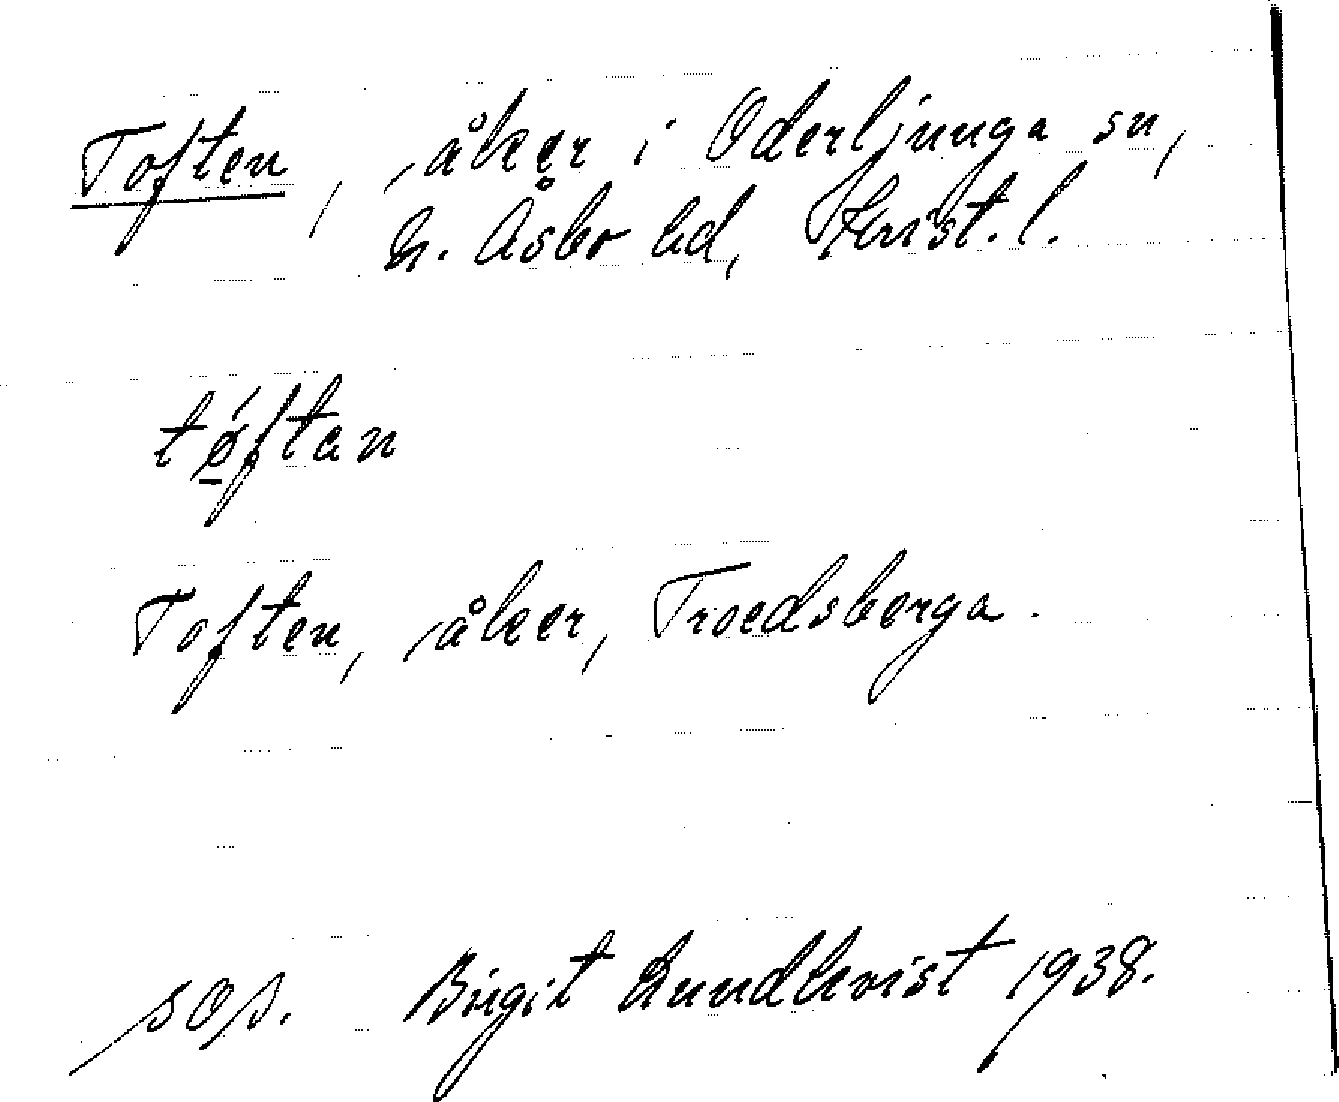 Toften, åker i Oderljunga sn,
N. Åsbo hd, Krist. l.
tǿ̱ftan
Toften, åker, Troedsberga.
sOs. Birgit Lundkvist 1938.